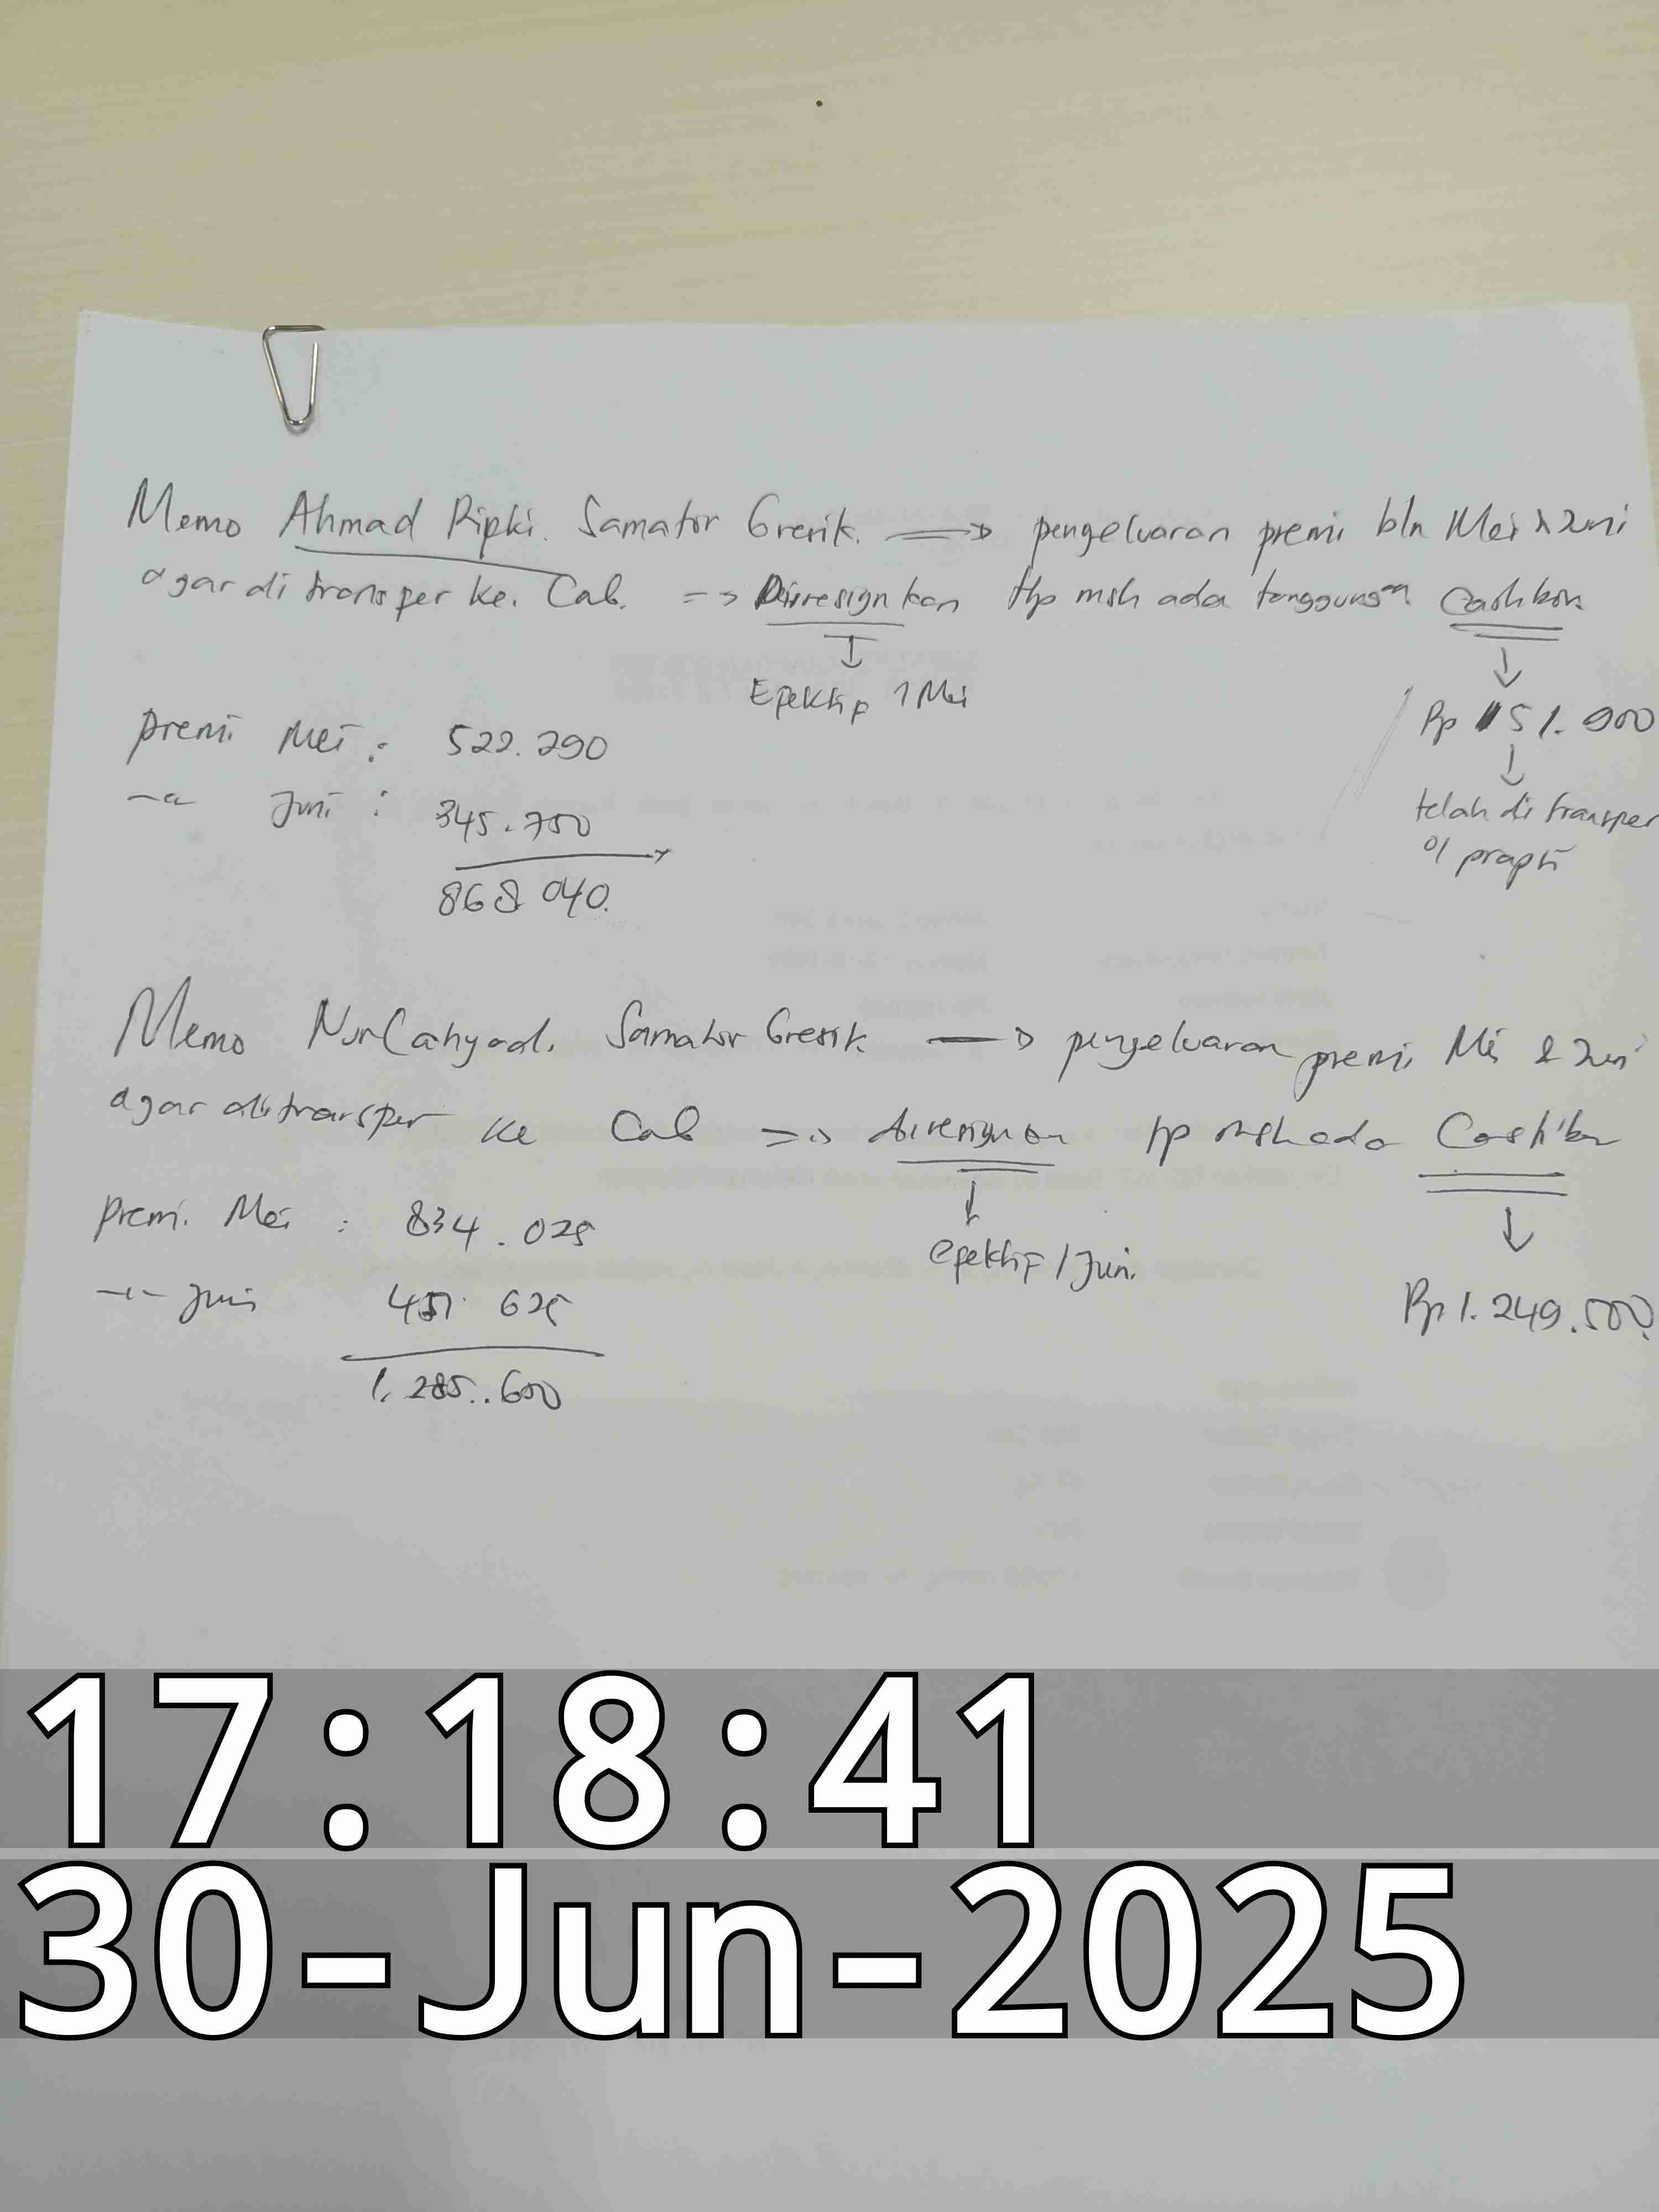 Memo Ahmad Ripki. Samator Gresik. => pengeluaran premi bln Mei & Juni
agar di transper ke. Cab. => Diresignkan ttp msh ada tanggungan Cashbon
Efektif 1 Mei
Rp 151.900
telah di transper
o/ prapti
premi Mei : 522.290
Juni : 345.750
868 040.
Memo Nur Cahyadi. Samator Gresik -> pengeluaran premi Mei & Juni
agar ditransper ke Cab => diresignkan ttp msh ada Cashbon
efektif 1 Juni.
Rp 1.249.500.
premi Mei : 834.025
Juni 451 625
1.285..650
17:18:41
30-Jun-2025